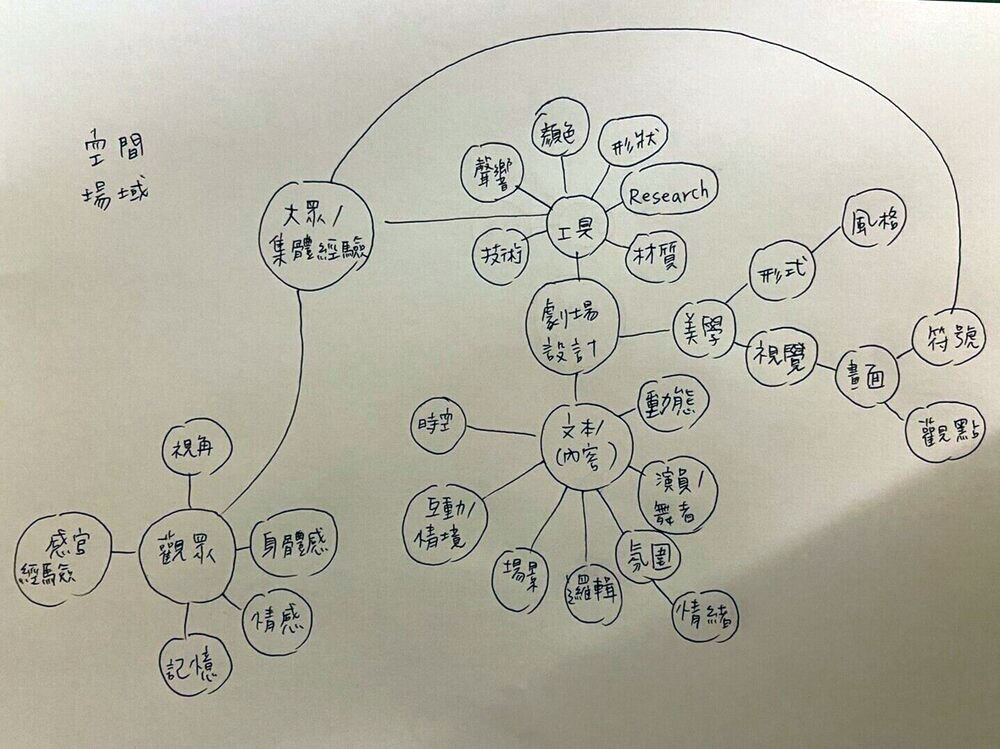 空間
場域
大眾/
集體經驗
顏色
形狀
聲響
Research
工具
技術
材質
風格
形式
劇場
設計
美學
視覺
畫面
符號
觀點
時空
文本/
(內容)
動態
互動/
情境
演員/
舞者
場景
邏輯
氛圍
情緒
視角
感官
經驗
觀眾
身體感
情感
記憶